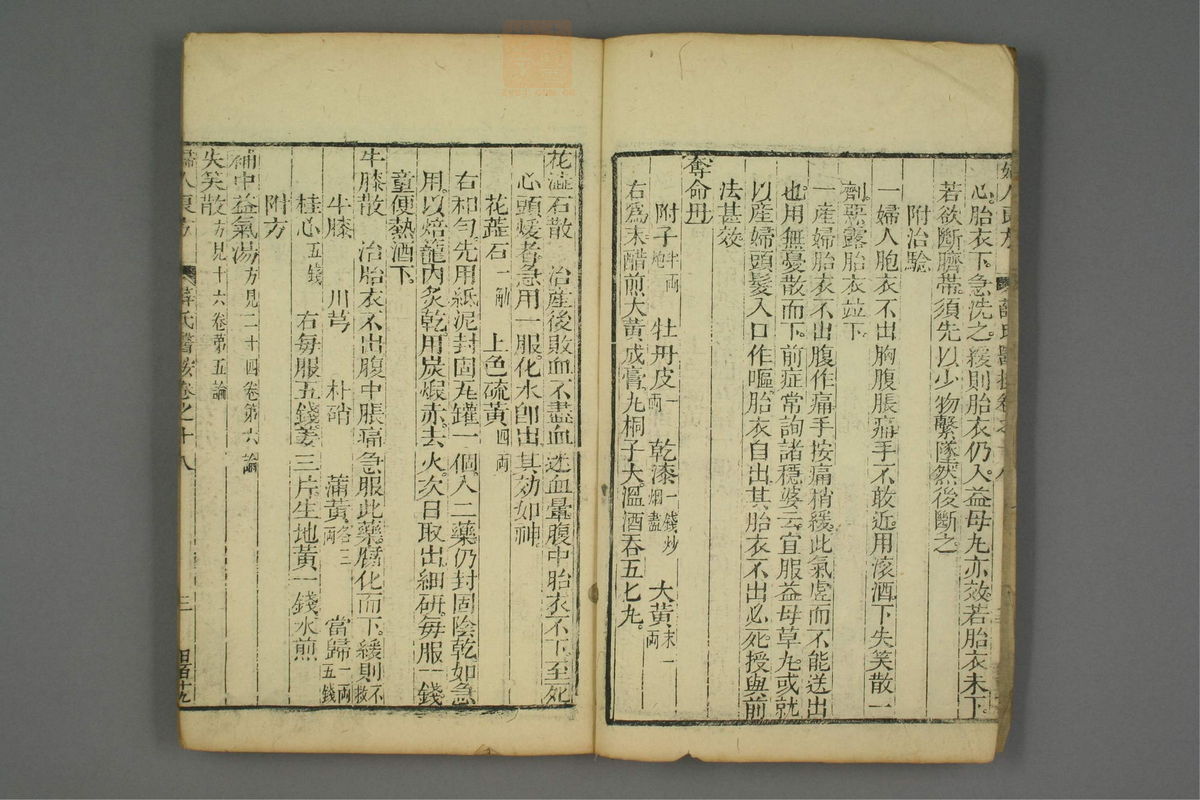 心胎衣下急洗之緩則胎衣仍入益母丸亦效若胎衣未下
若欲斷臍帶須先以少物繫墜然後斷之
附治驗
一婦人胞衣不出胸腹脹痛手不敢近用滾酒下失笑散一
劑惡露胎衣竝下
一產婦胎衣不出腹作痛手按痛稍緩此氣虛而不能送出
也用無憂散而下前症常詢諸穩婆云宜服益母草丸或就
以產婦頭髮入口作嘔胎衣自出其胎衣不出必死授與前
法甚效
奪命丹
附子半兩炮 牡丹皮一兩 乾漆一錢炒烟盡 大黃末一兩
右為末醋煎大黃成膏丸桐子大溫酒吞五七丸
花蕋石散 治產後敗血不盡血迷血暈腹中胎衣不下至死
心頭煖者急用一服化水卽出其効如神
花蕋石一觔 上色硫黃四兩
右和勻先用紙泥封固瓦罐一個入二藥仍封固陰乾如急
用以焙籠內炙乾用炭煆赤去火次日取出細研每服一錢
童便熱酒下
牛膝散 治胎衣不出腹中脹痛急服此藥腐化而下緩則不救
牛膝 川芎 朴硝 蒲黃各三兩 當歸一兩五錢
桂心五錢 右每服五錢姜三片生地黃一錢水煎
附方
補中益氣湯方見二十四卷第六論
失笑散方見十六卷第五論
婦人良方 薛氏醫按卷之十八 三